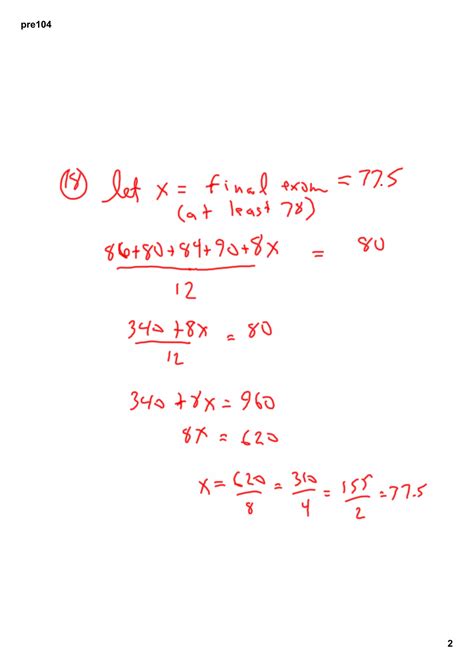 pre104
(18) let x = final exam = 77.5
(at least 78)
86+80+84+90+8x = 80
12
340 +8x = 80
12
340 + 8x = 960
8x = 620
x = 620 = 310 = 155 = 77.5
8 4 2
2